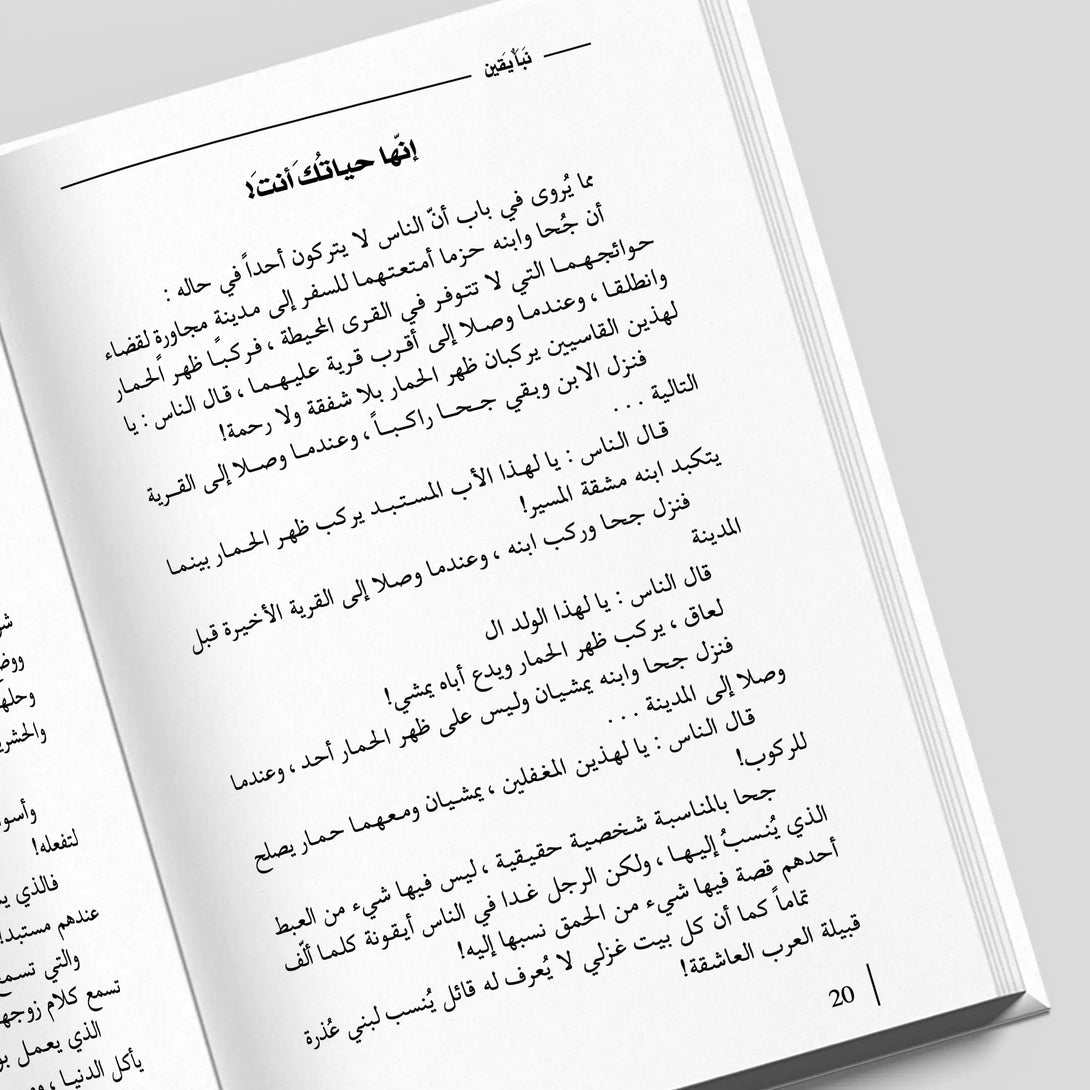 نَبَأيَقين
إنّها حياتُكَ أنتَ!
مما يُروى في باب أنّ الناس لا يتركون أحداً في حاله :
أن جُحا وابنه حزما أمتعتهما للسفر إلى مدينةٍ مجاورةٍ لقضاء
حوائجهما التي لا تتوفر في القرى المحيطة ، فركبا ظهر الحمار
وانطلقا ، وعندما وصلا إلى أقرب قرية عليهما ، قال الناس : يا
لهذين القاسيين يركبان ظهر الحمار بلا شفقة ولا رحمة!
فنزل الابن وبقي جحا راكباً ، وعندما وصلا إلى القرية
التالية . . .
قال الناس : يا لهذا الأب المستبد يركب ظهر الحمار بينما
يتكبد ابنه مشقة المسير!
فنزل جحا وركب ابنه ، وعندما وصلا إلى القرية الأخيرة قبل
المدينة
قال الناس : يا لهذا الولد ال
لعاق ، يركب ظهر الحمار ويدع أباه يمشي!
فنزل جحا وابنه يمشيان وليس على ظهر الحمار أحد ، وعندما
وصلا إلى المدينة . . .
قال الناس : يا لهذين المغفلين ، يمشيان ومعهما حمار يصلح
للركوب!
جحا بالمناسبة شخصية حقيقية ، ليس فيها شيء من العبط
الذي يُنسبُ إليها ، ولكن الرجل غدا في الناس أيقونة كلما ألّف
أحدهم قصة فيها شيء من الحمق نسبها إليه!
تماماً كما أن كل بيت غزلي لا يُعرف له قائل يُنسب لبني عُذرة
قبيلة العرب العاشقة!
20
لتفعله!
فالذي
عندهم
والتي
تسمع كلام
الذي يعمل
يأكل الدنيا ،